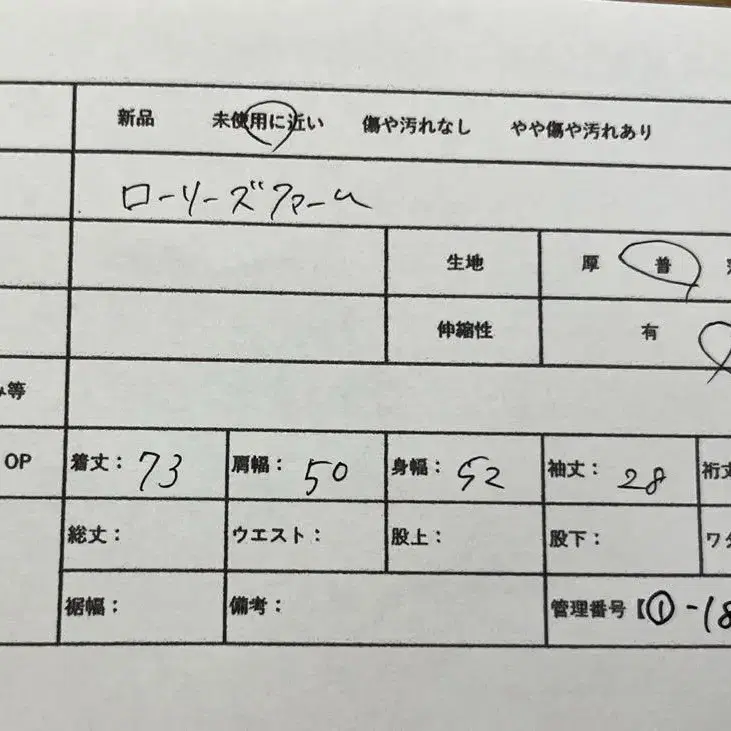 新品 未使用に近い 傷や汚れなし やや傷や汚れあり
ローリーズファーム
生地 厚 普
伸縮性 有
み等
OP 着丈：73 肩幅：50 身幅：52 袖丈：28 裄丈
総丈： ウエスト： 股上： 股下： ワタ
裾幅： 備考： 管理番号【①-18